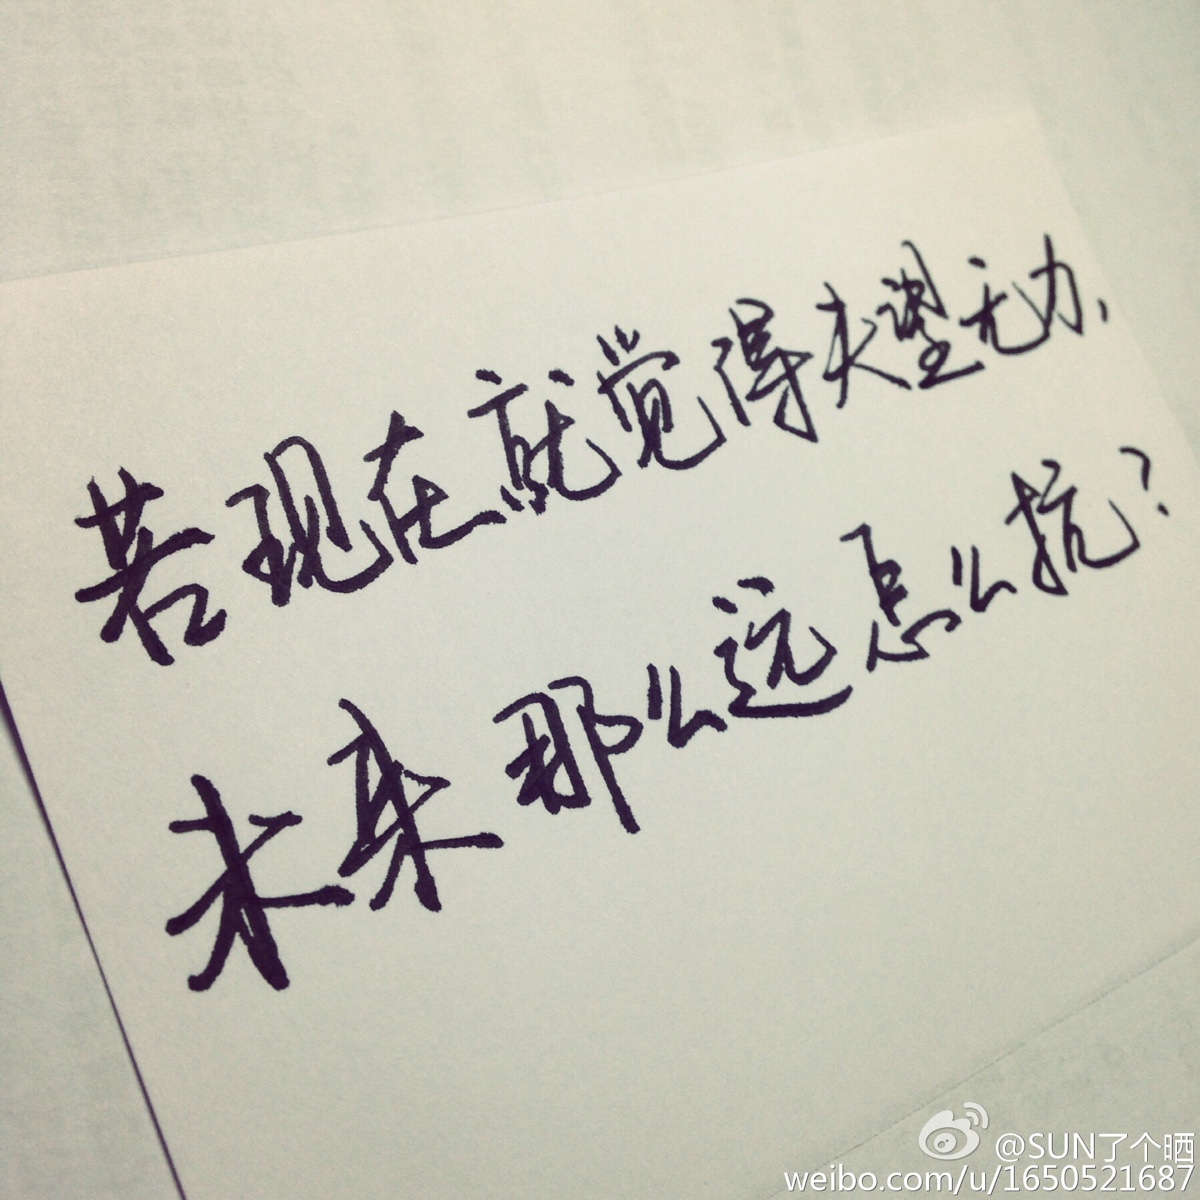 若现在就觉得失望无力、
未来那么远怎么抗？
@SUN了个晒
weibo.com/u/1650521687